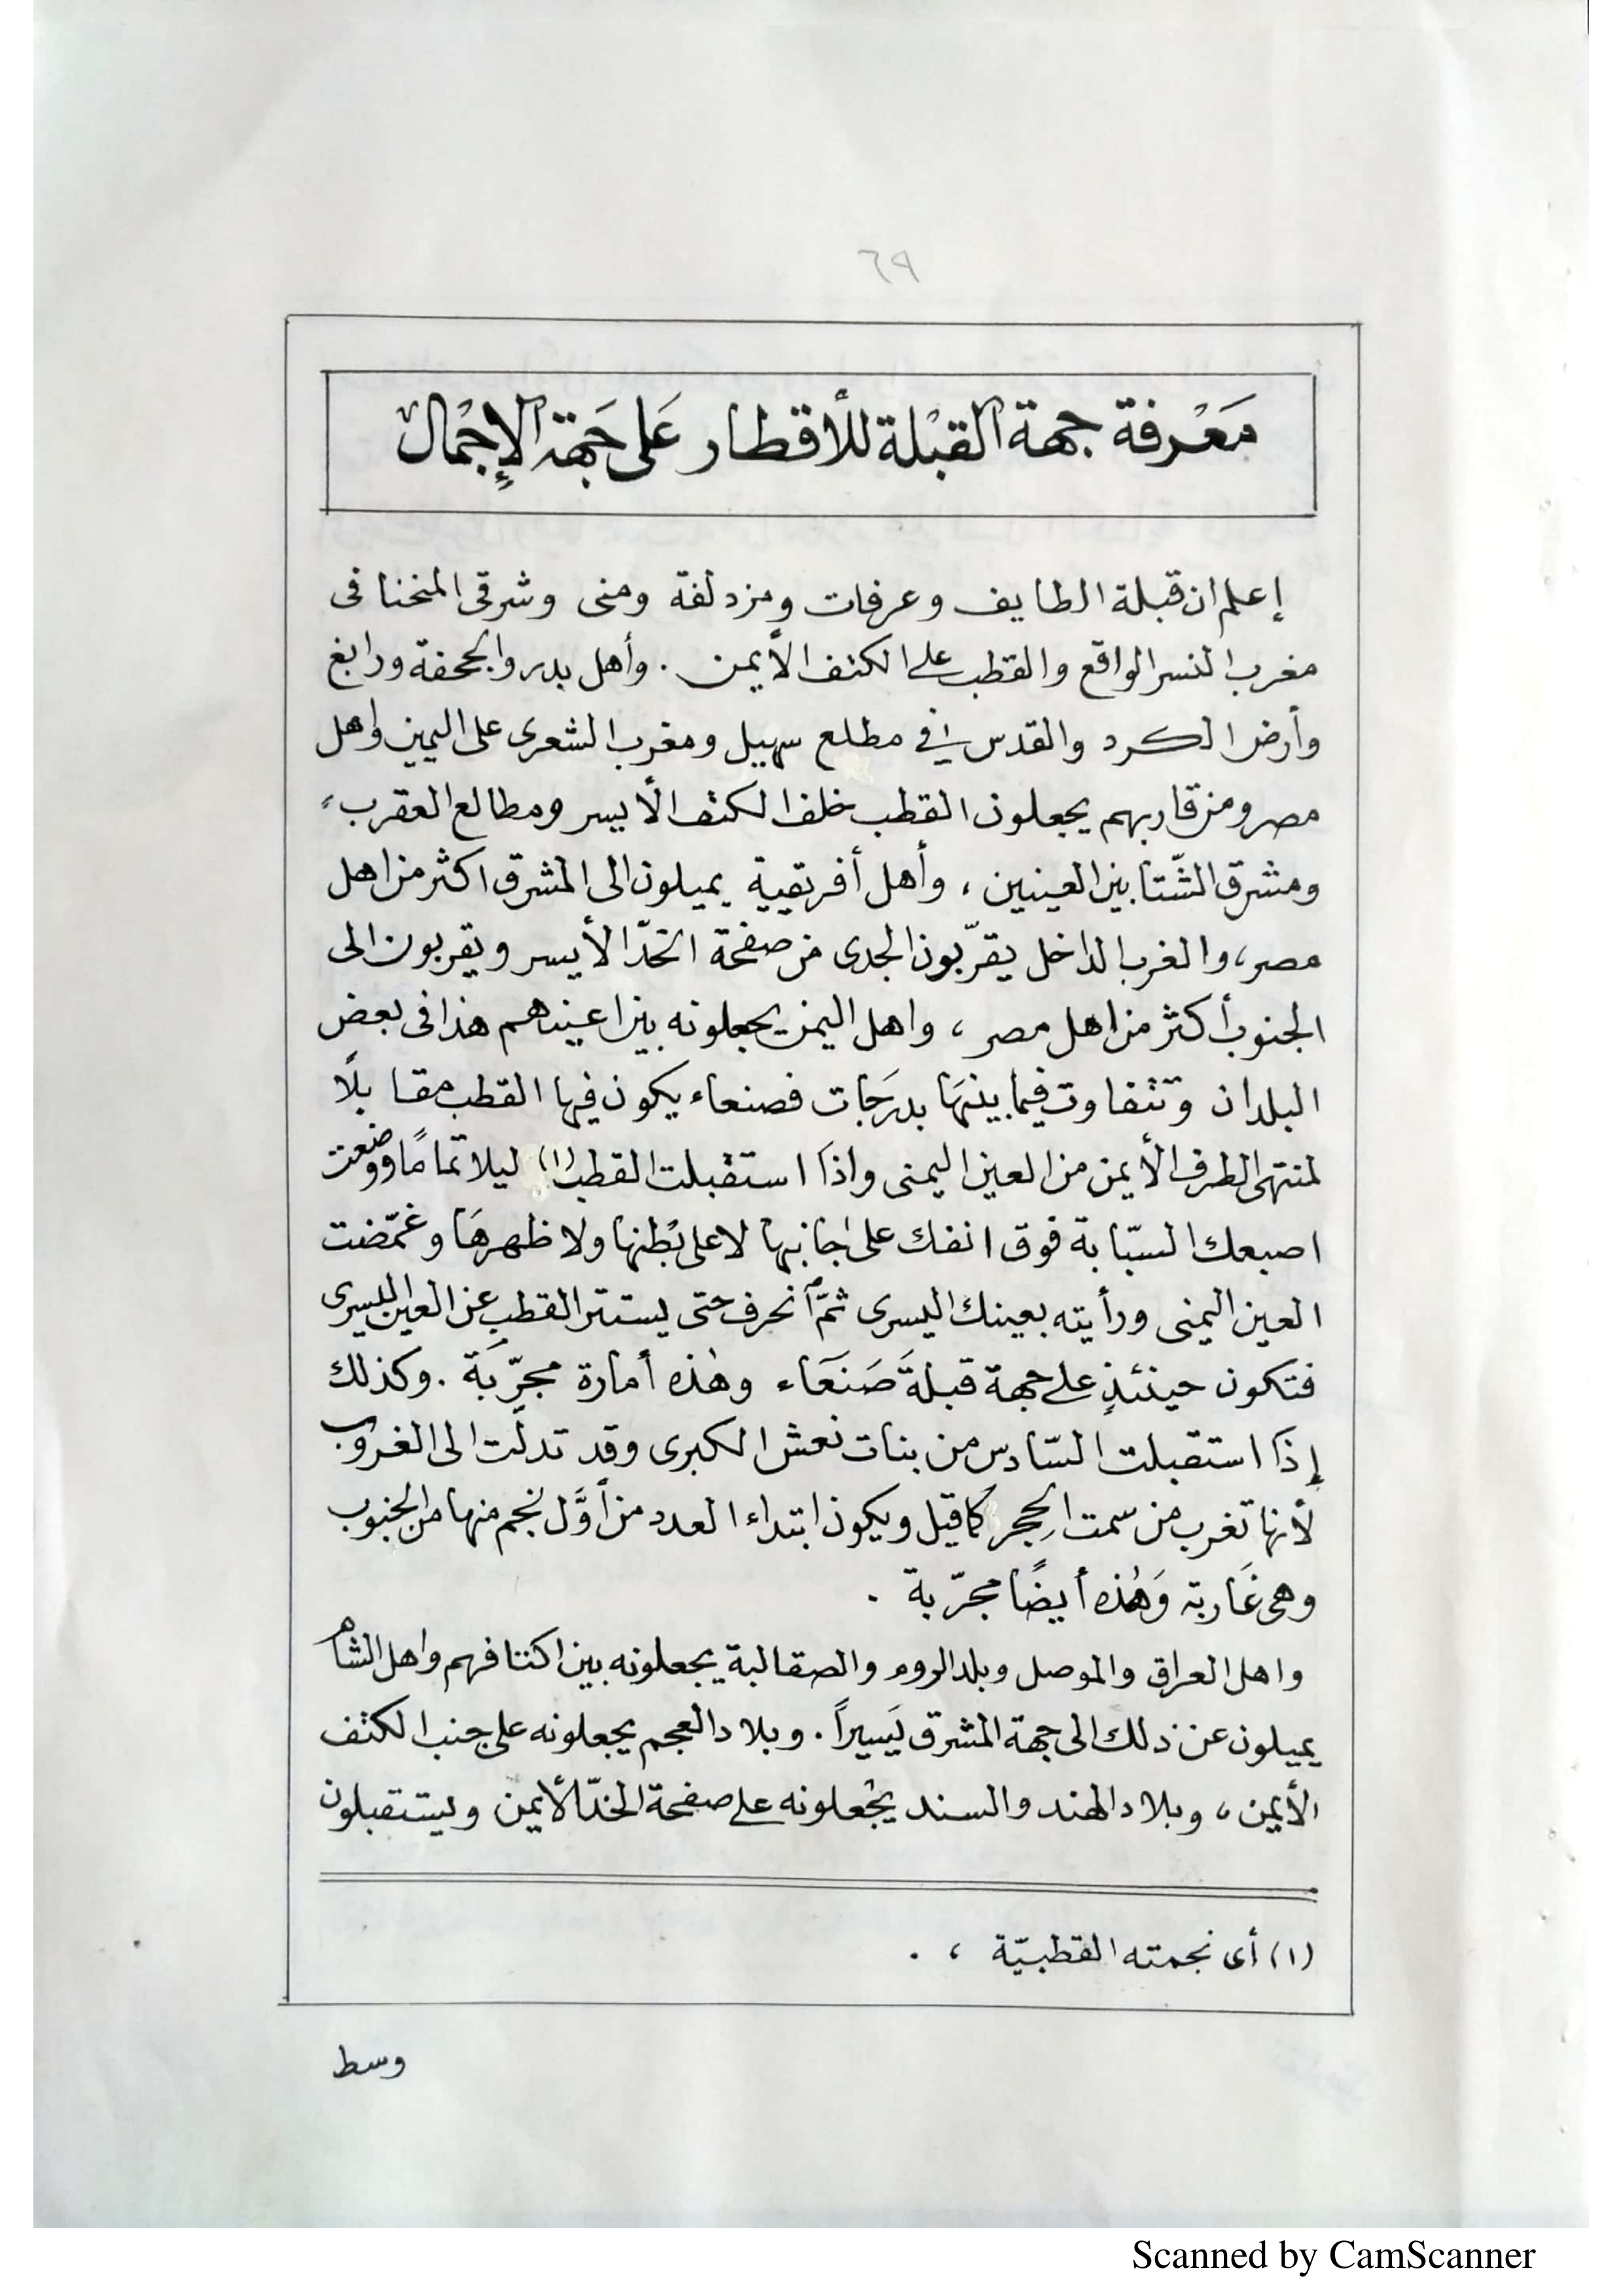 ٦٩
مَعْرفة جهة القبْلة للأقطار عَلى جَهة الإجْمال
إعلم ان قبلة الطايف وعرفات ومزدلفة ومنى وشرقى المنحنا فى
مغرب النسر الواقع والقطب على الكتف الأيمن . وأهل بدر والجحفة ورابغ
وأرض الكرد والقدس في مطلع سهيل ومغرب الشعرى على اليمين واهل
مصر ومن قاربهم يجعلون القطب خلف الكتف الأيسر ومطالع العقرب
ومشرق الشّتا بين العينين ، وأهل أفريقية يميلون الى المشرق اكثر من اهل
مصر، والغرب الداخل يقرّبون الجدى من صفحة الخدّ الأيسر ويقربون الى
الجنوب أكثر من اهل مصر ، واهل اليمن يجعلونه بين اعينهم هذا فى بعض
البلدان وتتفاوت فيما بينهَا بدرَجات فصنعاء يكون فيها القطب مقابلاً
لمنتهى الطرف الأيمن من العين اليمنى واذا استقبلت القطب (١) ليلا تمامًا ووضعت
اصبعك السبّابة فوق انفك على جانبها لا على بَطنها ولا ظهرهَا وغمّضت
العين اليمنى ورأيته بعينك اليسرى ثمّ انحرف حتى يستتر القطب عن العين اليسرى
فتكون حينئذٍ على جهة قبلة صَنعَاء وهٰذه أمارة مجرّبَة . وكذلك
إذا استقبلت السّادس من بنات نعش الكبرى وقد تدلّت الى الغروب
لأنها تغرب من سمت الحِجر كما قيل ويكون ابتداء العدد من أوَّل نجم منها من الجنوب
وهى غَاربة وَهٰذه أيضًا مجرّبة .
واهل العراق والموصل وبلد الروم والصقالبة يجعلونه بين اكتافهم واهل الشام
يميلون عن ذلك الى جهة المشرق يَسيراً . وبلاد العجم يجعلونه على جنب الكتف
الأيمن ، وبلاد الهند والسند يجْعلونه على صفحة الخدّ الأيمن ويستقبلون
(١) أى نجمته القطبيّة ، .
وسط
Scanned by CamScanner